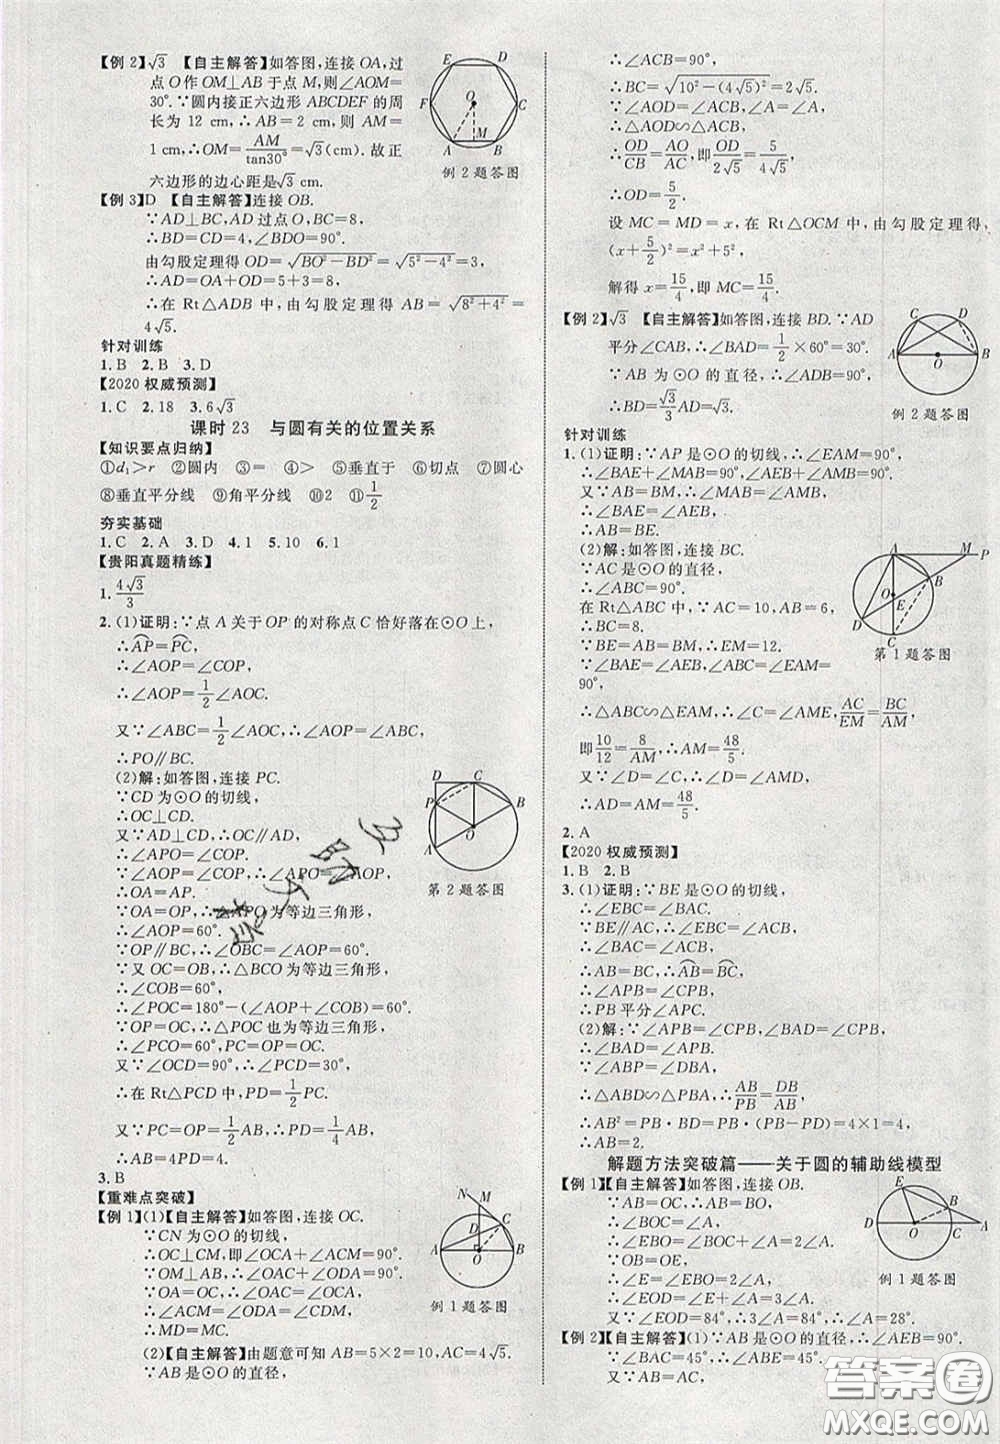 【例 2】√3 【自主解答】如答图,连接 OA,过
点 O 作 OM⊥AB 于点 M,则∠AOM=
30°.∵圆内接正六边形 ABCDEF 的周
长为 12 cm,∴AB=2 cm,则 AM=
1 cm,∴OM=AM/tan30°=√3(cm). 故正
六边形的边心距是√3 cm.
E D F O C A M B
例 2 题答图
【例 3】D 【自主解答】连接 OB.
∵AD⊥BC,AD 过点 O,BC=8,
∴BD=CD=4,∠BDO=90°.
由勾股定理得 OD=√(BO²-BD²)=√(5²-4²)=3.
∴AD=OA+OD=5+3=8.
∴在 Rt△ADB 中,由勾股定理得 AB=√(8²+4²)=
4√5.
针对训练
1. B 2. B 3. D
【2020 权威预测】
1. C 2. 18 3. 6√3
课时 23 与圆有关的位置关系
【知识要点归纳】
①d₁>r ②圆内 ③相等 ⑤垂直于 ⑥切点 ⑦圆心
⑧垂直平分线 ⑨角平分线 ⑩2 ⑪1/2
夯实基础
1. C 2. A 3. D 4. 1 5. 10 6. 1
【贵阳真题精练】
1. 4√3/3
2. (1)证明:∵点 A 关于 OP 的对称点 C 恰好落在⊙O 上,
∴AP=PC.
∴∠AOP=∠COP,
∴∠AOP=1/2∠AOC.
又∵∠ABC=1/2∠AOC,∴∠AOP=∠ABC,
∴PO∥BC.
(2)解:如答图,连接 PC.
∵CD 为⊙O 的切线,
∴OC⊥CD.
又∵AD⊥CD,∴OC∥AD,
∴∠APO=∠COP.
∵∠AOP=∠COP,∴∠APO=∠AOP,
∴OA=AP.
∵OA=OP,∴△APO 为等边三角形,
∴∠AOP=60°.
∵OP∥BC,∴∠OBC=∠AOP=60°.
又∵OC=OB,∴△BCO 为等边三角形,
∴∠COB=60°,
∴∠POC=180°-(∠AOP+∠COB)=60°.
∵OP=OC,∴△POC 也为等边三角形,
∴∠PCO=60°,PC=OP=OC.
又∵∠OCD=90°,∴∠PCD=30°.
∴在 Rt△PCD 中,PD=1/2PC.
又∵PC=OP=1/2AB,∴PD=1/4AB,
∴AB=4PD=4.
D C P B O A
第 2 题答图
3. B
【重难点突破】
【例 1】(1)【自主解答】如答图,连接 OC.
∵CN 为⊙O 的切线,
∴OC⊥CM,即∠OCA+∠ACM=90°.
∵OM⊥AB,∴∠OAC+∠ODA=90°.
∵OA=OC,∴∠OAC=∠OCA,
∴∠ACM=∠ODA=∠CDM,
∴MD=MC.
N M C D A O B
例 1 题答图
(2)【自主解答】由题意可知 AB=5×2=10,AC=4√5.
∵AB 是⊙O 的直径,
∴∠ACB=90°,
∴BC=√(10²-(4√5)²)=2√5.
∵∠AOD=∠ACB,∠A=∠A,
∴△AOD∽△ACB,
∴OD/CB=AO/AC,即OD/2√5=5/4√5,
∴OD=5/2.
设 MC=MD=x,在 Rt△OCM 中,由勾股定理得,
(x+5/2)²=x²+5²,
解得 x=15/4,即 MC=15/4.
【例 2】√3 【自主解答】如答图,连接 BD.∵AD
平分∠CAB,∴∠BAD=1/2×60°=30°.
∵AB 为⊙O 的直径,∴∠ADB=90°.
∴BD=AD/√3=√3.
C D A O B
例 2 题答图
针对训练
1. (1)证明:∵AP 是⊙O 的切线,∴∠EAM=90°,
∴∠BAE+∠MAB=90°,∠AEB+∠AMB=90°.
又∵AB=BM,∴∠MAB=∠AMB,
∴∠BAE=∠AEB,
∴AB=BE.
(2)解:如答图,连接 BC.
∵AC 是⊙O 的直径,
∴∠ABC=90°.
在 Rt△ABC 中,∵AC=10,AB=6,
∴BC=8.
∵BE=AB=BM,∴EM=12.
∵∠BAE=∠AEB,∠EAM=∠ABC=
90°,
∴△ABC∽△EAM,∴∠C=∠AME,AC/EM=BC/AM,
即10/12=8/AM,∴AM=48/5.
又∵∠D=∠C,∴∠D=∠AMD,
∴AD=AM=48/5.
A M P B O E D C
第 1 题答图
2. A
【2020 权威预测】
1. B 2. B
3. (1)证明:∵BE 是⊙O 的切线,
∴∠EBC=∠BAC.
∵BE∥AC,∴∠EBC=∠ACB,
∴∠BAC=∠ACB,
∴AB=BC,∴AB=BC,
∴∠APB=∠CPB,
∴PB 平分∠APC.
(2)解:∵∠APB=∠CPB,∠BAD=∠CPB,
∴∠BAD=∠APB.
又∵∠ABP=∠DBA,
∴△ABD∽△PBA,∴AB/PB=DB/AB,
∴AB²=PB·BD=PB·(PB-PD)=4×1=4,
∴AB=2.
解题方法突破篇——关于圆的辅助线模型
【例 1】【自主解答】如答图,连接 OB.
∵AB=OC,∴AB=BO,
∴∠BOC=∠A,
∴∠EBO=∠BOC+∠A=2∠A.
∵OB=OE,
∴∠E=∠EBO=2∠A,
∴∠EOD=∠E+∠A=3∠A.
又∵∠EOD=84°,∴3∠A=84°,∴∠A=28°.
E B D O C A
例 1 题答图
【例 2】【自主解答】(1)∵AB 是⊙O 的直径,∴∠AEB=90°.
∵∠BAC=45°,∴∠ABE=45°.
又∵AB=AC,
答案圈
MXQE.COM